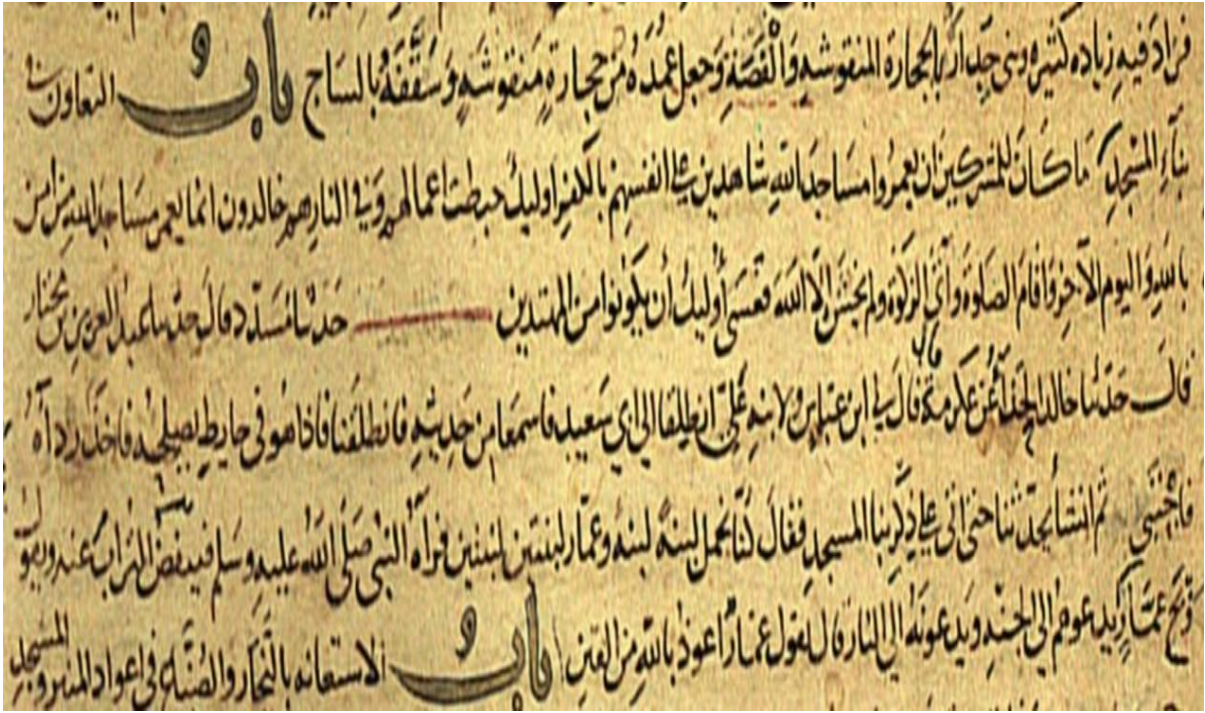 فزاد فيه زيادة كثيرة وبنى جداره بالحجارة المنقوشه والقصة وجعل عمده من حجارة منقوشه وسقفه بالساج باب التعاون في
بناء المسجد ما كان للمشركين ان يعمروا مساجد الله شاهدين على انفسهم بالكفر اوليك حبطت اعمالهم وفي النار هم خالدون انما يعمر مساجد الله من امن
بالله واليوم الآخر واقام الصلوة وآتى الزكوة ولم يخش الا الله فعسى أوليك أن يكونوا من المهتدين حدثنا مسدد قال حدثنا عبد العزيز بن مختار
قال حدثنا خالد الحذاء عن عكرمة قال قال لي ابن عباس ولابنه علي انطلقا الى ابي سعيد فاسمعا من حديثه فانطلقنا فاذا هو في حايط يصلحه فاخذ رداءه
فاحتبى ثم انشا يحدثنا حتى اتى على ذكر بنا المسجد فقال كنا نحمل لبنة لبنة وعمار لبنتين لبنتين فرآه النبي صلى الله عليه وسلم فينفض التراب عنه ويقول
ويح عمار يدعوهم الى الجنه ويدعونه الى النار قال يقول عمار اعوذ بالله من الفتن باب الاستعانه بالنجار والصناع في اعواد المنبر والمسجد